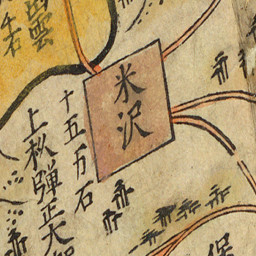 米沢
十五万石
上杦弾正大
出雲
千石
保